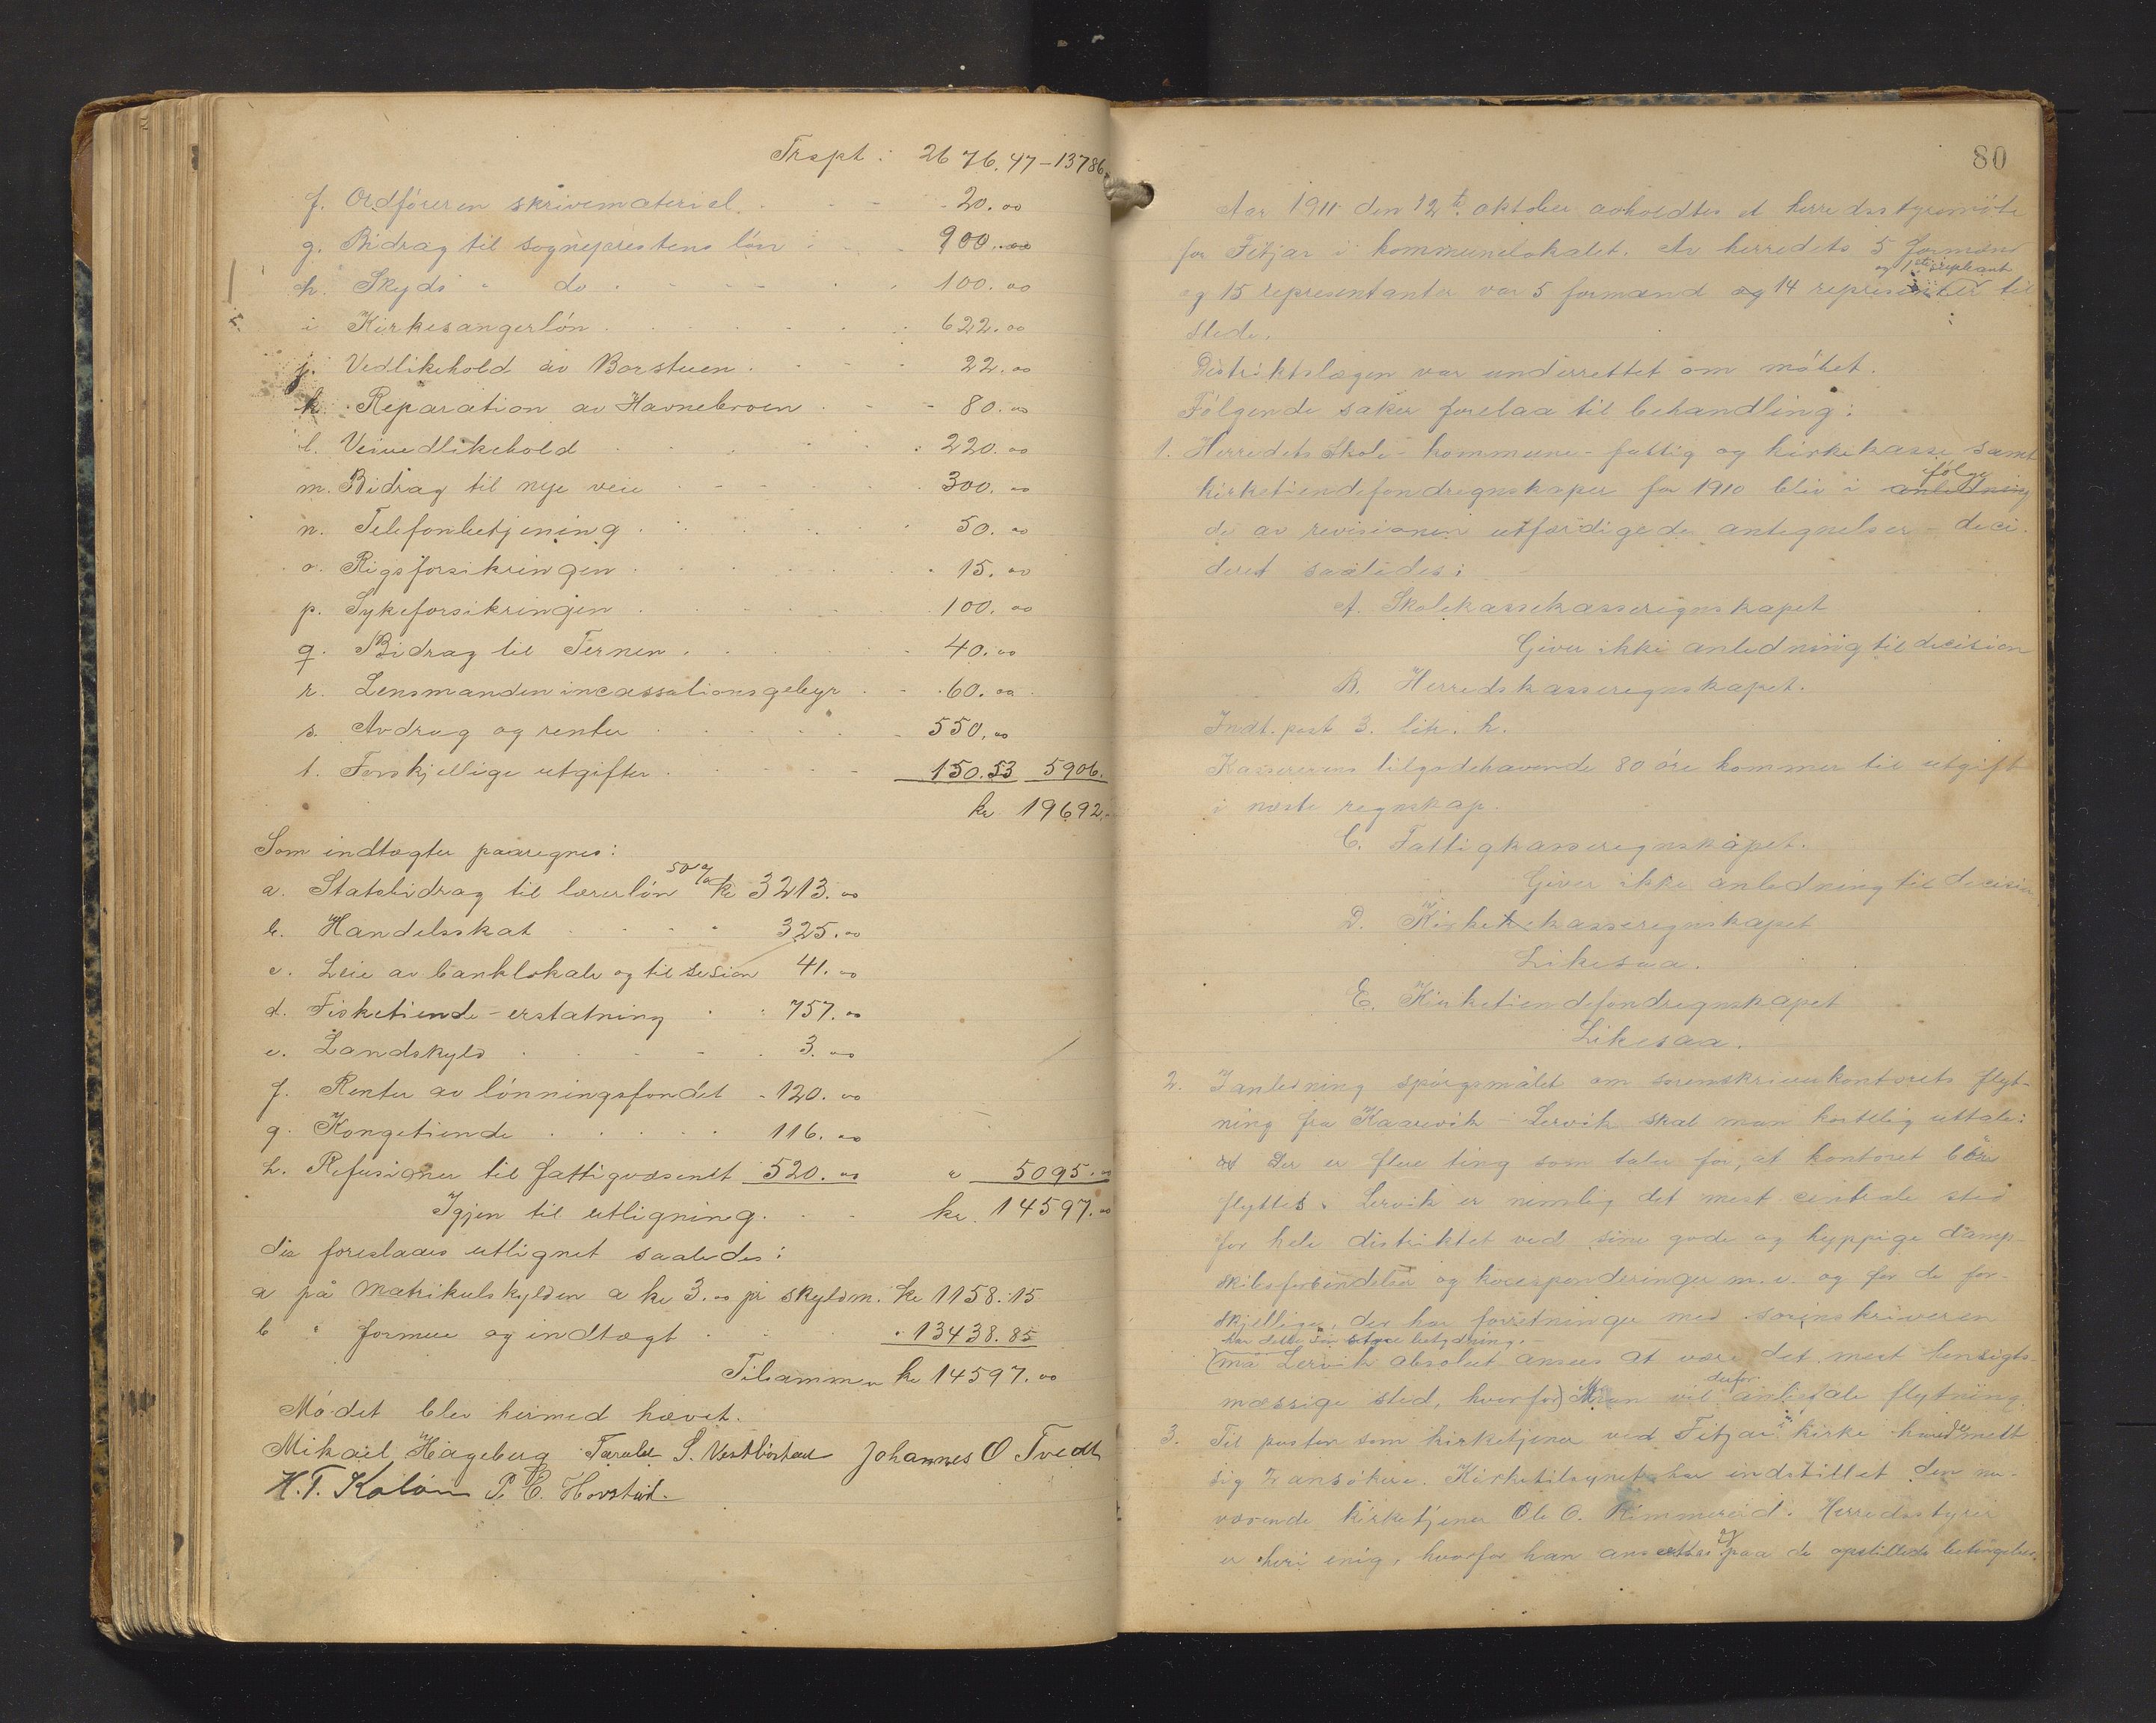 Trspt: 2676.47-13786.
f. Ordføreren skrivematerial. 20.00
g. Bidrag til sogneprestens løn 900.00
h. Skyds " do 100.00
i Kirkesangerløn 622.00
j. Vedlikehold av Borstuen 22.00
k. Reparation av Havnebroen 80.00
l. Veivedlikehold 220.00
m. Bidrag til nye veie 300.00
n. Telefonbetjening 50.00
o. Rigsforsikringen 15.00
p. Sykeforsikringen 100.00
q. Bidrag til Ternen 40.00
r. Lensmanden incassationsgebyr 60.00
s. Avdrag og renter 550.00
t. Forskjellige utgifter 150.53 5906.
kr 19692.-
Som indtægter paaregnes:
a. Statsbidrag til lærerløn 50% kr 3213.00
b. Handelsskat 325.00
c. Leie av banklokale og til sesion 41.00
d. Fisketiende-erstatning 757.00
e. Landskyld 3.00
f. Renter av lønningsfondet 120.00
g. Kongetiende 116.00
h. Refusioner til fattigvæsenet 520.00 " 5095.00
Igjen til utligning. kr. 14597.00
der foreslaaes utlignet saaledes:
a på Matrikulskylden a kr 3.00 pr skyldm. kr 1158.15
b " formue og indtægt " 13438.85
Tilsammen kr 14597.00
Mødet blev hermed hævet.
Mikael Hageberg Tarald S. Vestbøstad Johannes O Tvedt
H.T. Koløen P. E. Hovstad.
80
Aar 1911 den 12te oktober avholdtes et herredsstyremøte
for Fitjar i kommunelokalet. Av herredets 5 formænd
og 1ste supleant
og 15 representanter var 5 formænd og 14 representer til
stede.
Distriktslægen var underrettet om møtet.
Følgende saker forelaa til behandling:
1. Herredets Skole- kommune- fattig og kirkekasse samt
følge
kirketiendefondregnskaper for 1910 blev i anledning
de av revisionen utfærdigede antegnelser - deci-
deret saaledes:
A. Skolekassekasseregnskapet
Giver ikke anledning til decision
B. Herredskasseregnskapet.
Indt. post 3. litr. h.
Kassererens tilgodehavende 80 øre kommer til utgift
i næste regnskap.
C. Fattigkasseregnskapet.
Giver ikke anledning til decision
D. Kirkekasseregnskapet
Likesaa.
E. Kirketiendefondregnskapet
Likesaa.
2. I anledning spørgsmålet om sorenskriverkontorets flyt-
ning fra Kaarevik - Lervik skal man kortelig uttale:
at Der er flere ting som taler for, at kontoret bør
flyttes. Lervik er nemlig det mest centrale sted
for hele distriktet ved sine gode og hyppige damp-
skibsforbindelser og korresponderinger m. v. og for de for-
skjellige, der har forretninger med sorenskriveren
har dette sin store betydning.-
(må Lervik absolut ansees at være det mest hensigts-
mæssige sted, hvorfor) Man vil derfor anbefale flytning.
3. Til posten som kirketjener ved Fitjar kirke havde meldt
sig 2 ansøkere. Kirketilsynet har indstillet den nu-
værende kirketjener Ole O. Rimmereid. Herredsstyret
er heri enig, hvorfor han ansættes paa de opstillede betingelser.